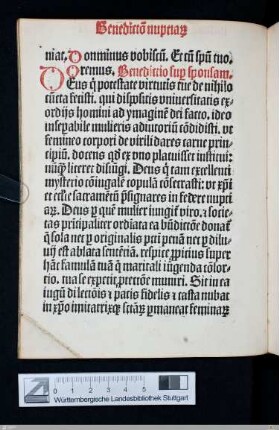 Benedictō nuptiaꝝ
niat. Dominus vobiscū. Et cū spū tuo.
Oremus. Benedictio suꝑ sponsam.
Deus q̄ potestate virtutis tue de nihilo
cūcta fecisti. qui dispositis vniuersitatis ex-
ordijs homini ad ymaginē dei facto. ideo
inseꝑabile mulieris adiutoriū cōdidisti. vt
femineo corpori de virili dares carne prin-
cipiū. docens qd̄ ex vno placuisset institui:
nūq̄ licere disiūgi. Deus q̄ tam excellenti
mysterio cōiugalē copulā cōsecrasti: vt xp̄i
et ecclīe sacramentū p̄signares in federe nupti
aꝝ. Deus ꝑ quē mulier iungit̄ viro. ⁊ socie-
tas principaliter ordiata ea bn̄dictiōe donat̄
q̄ sola nec ꝑ originalis pctī penā nec ꝑ dilu-
uij est ablata sentētiā. respice ꝓpitius super
hāc famulā tuā q̄ maritali iungenda cōsor-
tio. tua se expetit ꝓtectōe muniri. Sit in ea
iugū dilectōis ⁊ pacis fidelis ⁊ casta nubat
in xp̄o imitatrixq̄ꝫ sctāꝝ ꝑmaneat feminaꝝ
Württembergische Landesbibliothek Stuttgart